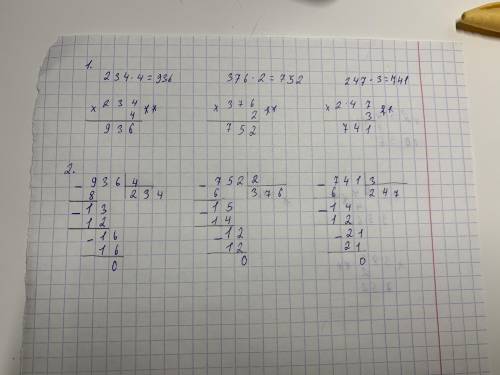 1.
234·4=936 376·2=752 247·3=741
× 234 × 376 × 247
4 2 3
936 752 741
2.
- 936 4 - 752 2 - 741 3
8 234 6 376 6 247
- 13 - 15 - 14
12 14 12
- 16 - 12 - 21
16 12 21
0 0 0